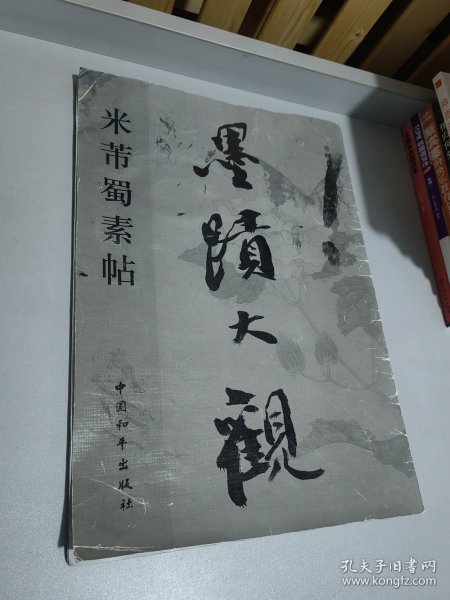 米芾蜀素帖
墨蹟大觀
中国和平出版社
孔夫子旧书网
www.kongfz.com